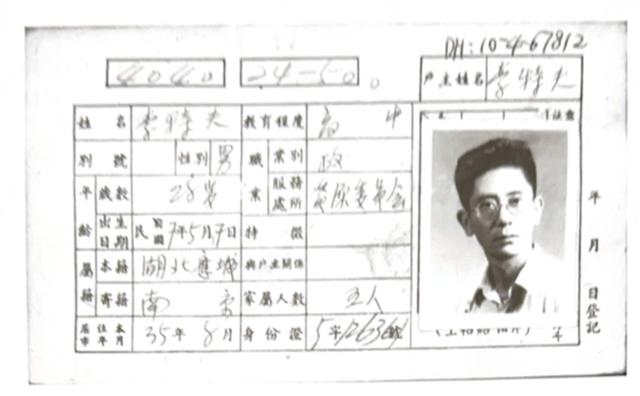 DH:10-4-67812
4040 24-50。 戶主姓名 李特夫
姓名 李特夫 教育程度 高中
別號 性別 男 職業 業別 政
年齡 歲數 28歲 服務處所 資源委員會
出生日期 民國7年5月7日 特徵
屬籍 本籍 湖北應城 與戶主關係
寄籍 南京 家屬人數 五人
居住本市年月 35年8月 身份證
年 月 日登記